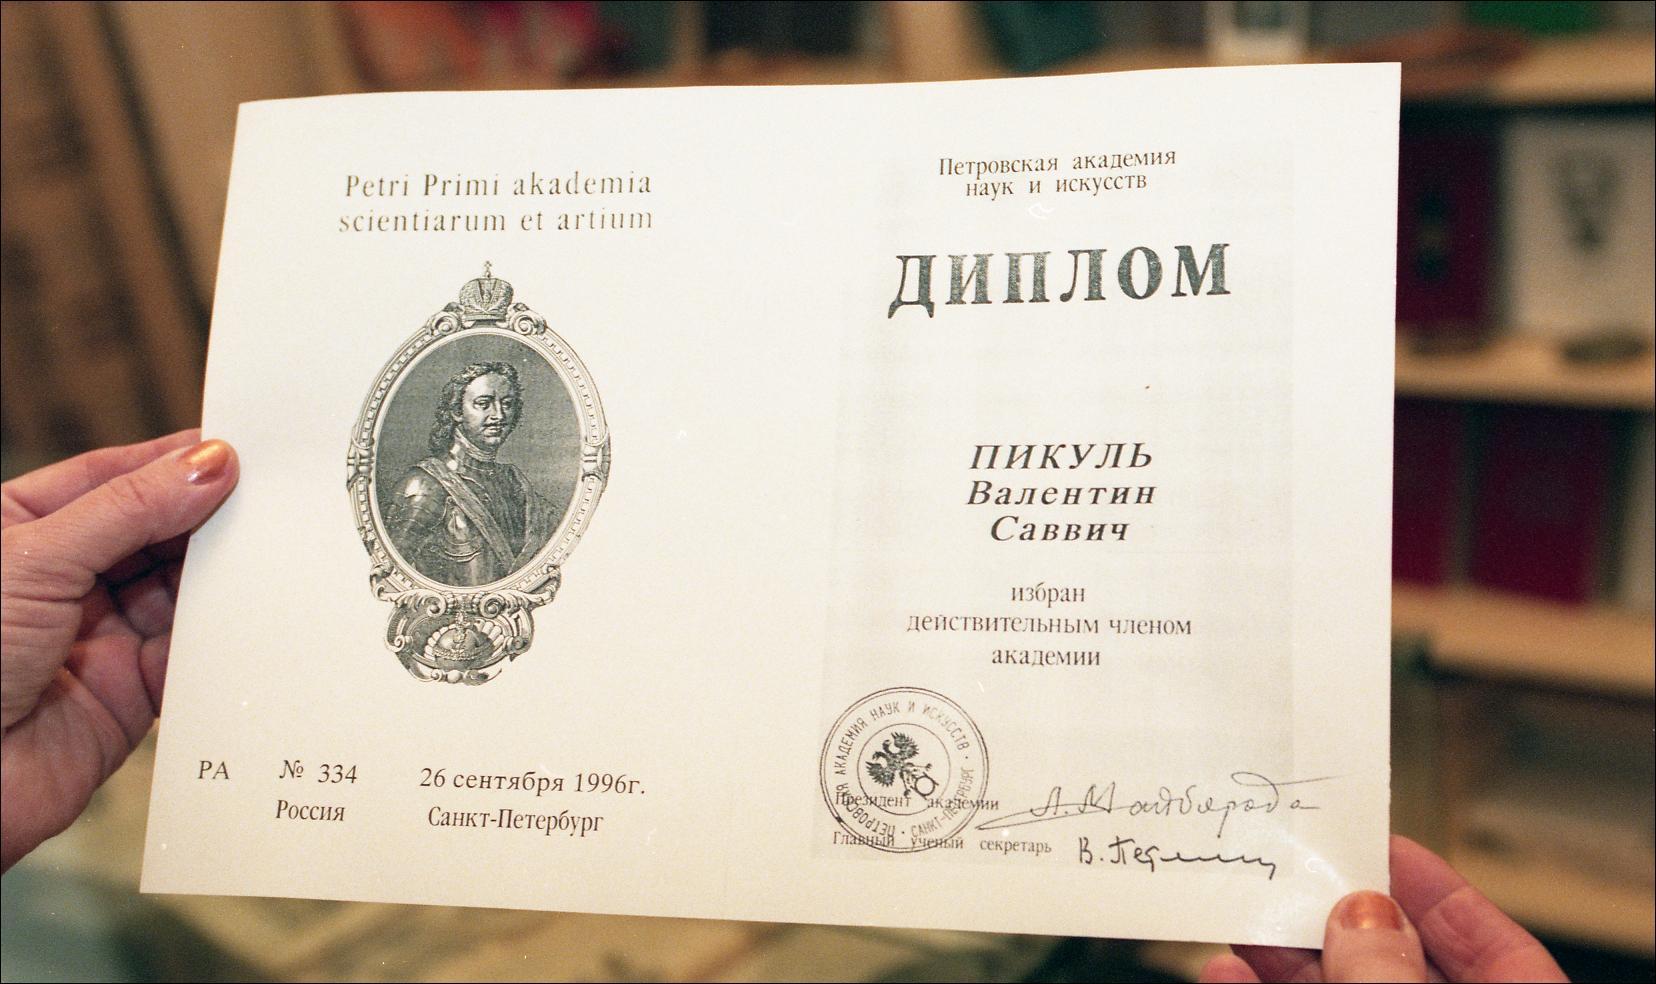 Petri Primi akademia
scientiarum et artium
РА № 334 26 сентября 1996г.
Россия Санкт-Петербург
Петровская академия
наук и искусств
ДИПЛОМ
ПИКУЛЬ
Валентин
Саввич
избран
действительным членом
академии
ПЕТРОВСКАЯ АКАДЕМИЯ НАУК И ИСКУССТВ · САНКТ-ПЕТЕРБУРГ ·
Президент академии
Главный ученый секретарь